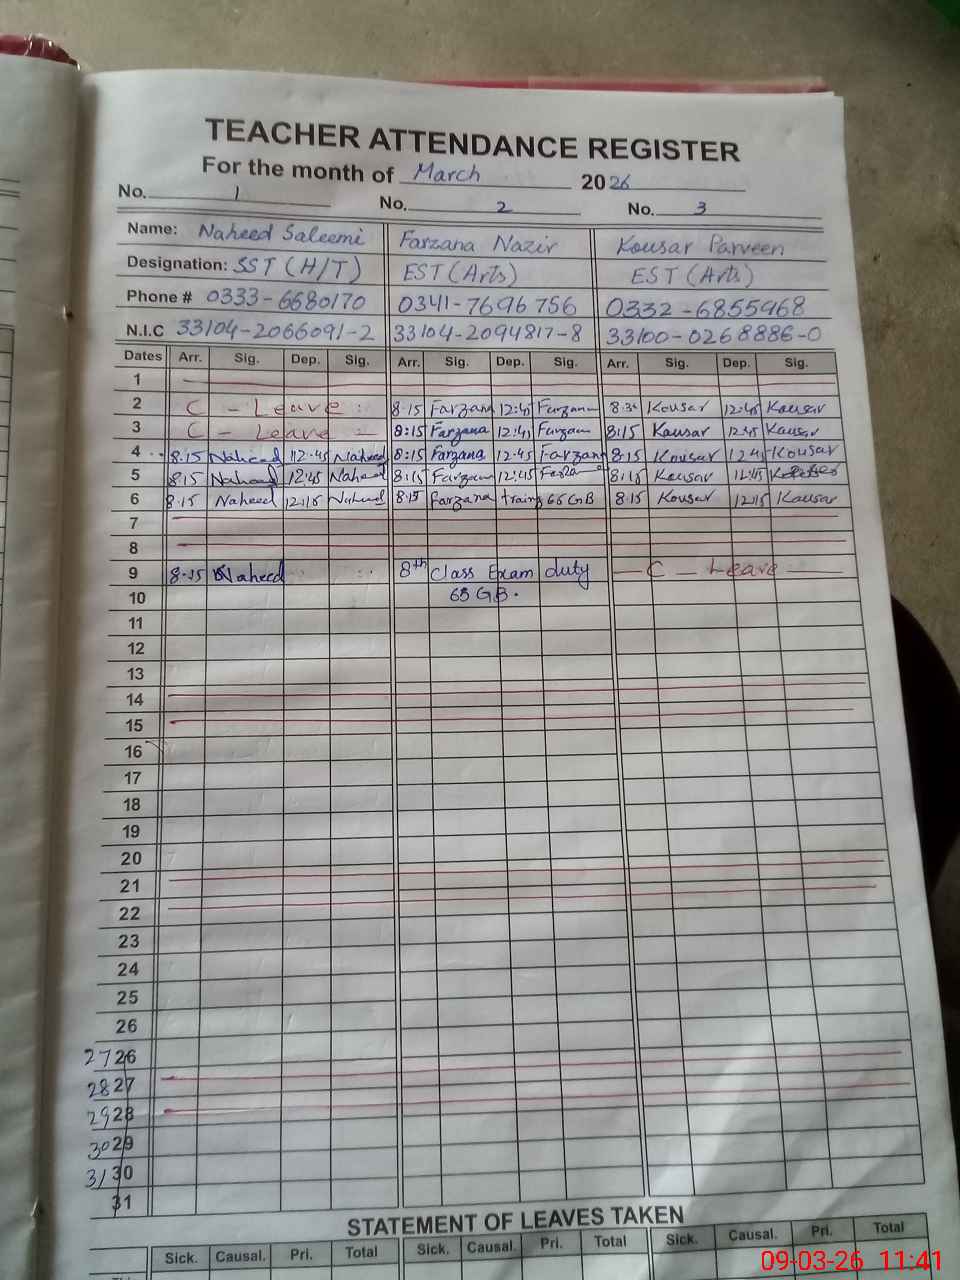 TEACHER ATTENDANCE REGISTER
For the month of March 2026
No. 1 No. 2 No. 3
Name: Naheed Saleemi Farzana Nazir Kousar Parveen
Designation: SST (H/T) EST (Arts) EST (Arts)
Phone # 0333-6680170 0341-7696756 0332-6855968
N.I.C 33104-2066091-2 33104-2094817-8 33100-0268886-0
Dates Arr. Sig. Dep. Sig. Arr. Sig. Dep. Sig. Arr. Sig. Dep. Sig.
1
2 C - Leave 8.15 Farzana 12:45 Farzana 8.30 Kousar 12:45 Kousar
3 C - Leave 8:15 Farzana 12:45 Farzana 8:15 Kousar 12:45 Kousar
4 8.15 Naheed 12:45 Naheed 8:15 Farzana 12:45 Farzana 8:15 Kousar 12:45 Kousar
5 8.15 Naheed 12:45 Naheed 8:15 Farzana 12:45 Farzana 8:15 Kousar 12:45 Kousar
6 8.15 Naheed 12:15 Naheed 8:15 Farzana 66 GB 8.15 Kousar 12:15 Kausar
7
8
9 8.15 Naheed 8th Class Exam duty C Leave
10 65 GB.
11
12
13
14
15
16
17
18
19
20
21
22
23
24
25
26
27 26
28 27
29 28
30 29
31 30
31
STATEMENT OF LEAVES TAKEN
Sick. Causal. Pri. Total Sick. Causal. Pri. Total Sick. Causal. Pri. Total
09-03-26 11:41